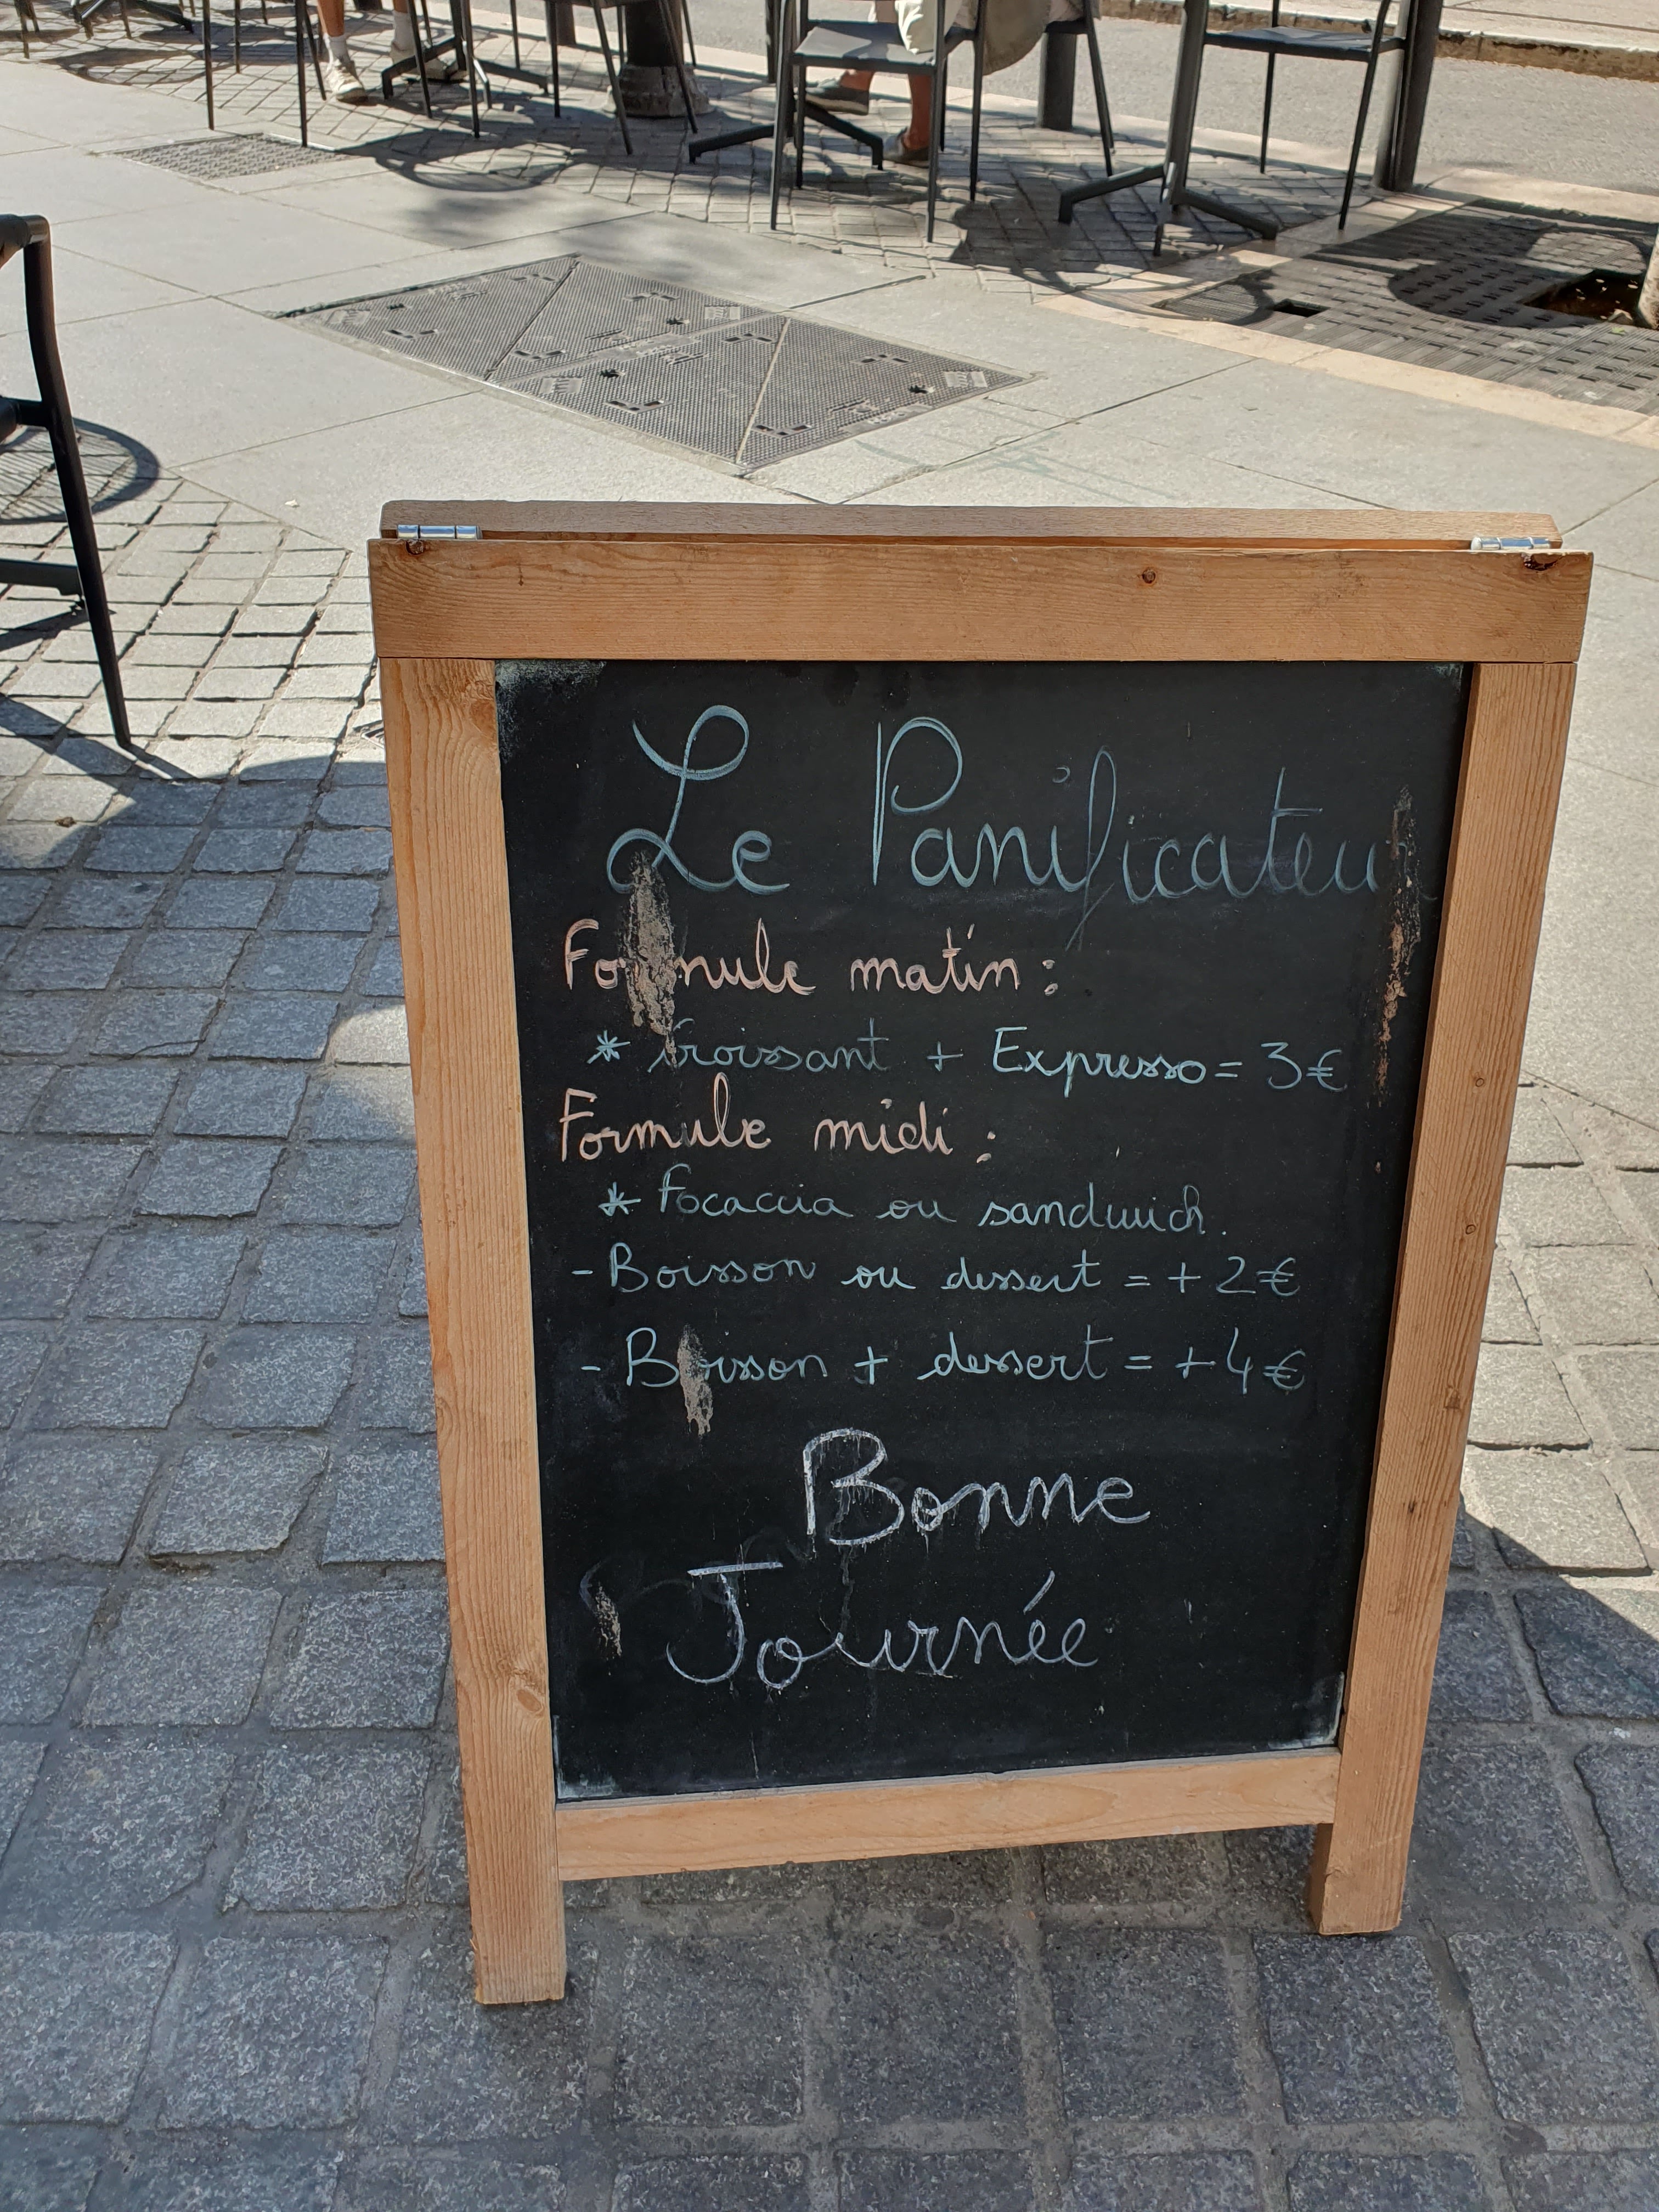 Le Panificateur
Formule matin :
* Croissant + Expresso = 3€
Formule midi :
* Focaccia ou sandwich.
- Boisson ou dessert = + 2€
- Boisson + dessert = + 4€
Bonne
Journée